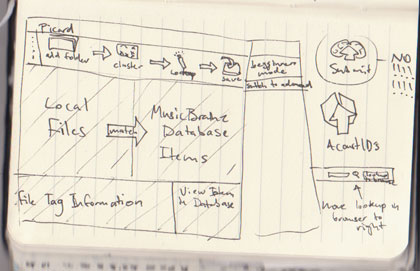 Picard
add folder
cluster
Lookup
save
beginner
mode
switch to advanced
Submit
NO
!!!!
Local
Files
match
MusicBrainz
Database
Items
AcoustIDs
File Tag Information
View Item
in Database
move lookup in
browser to
right